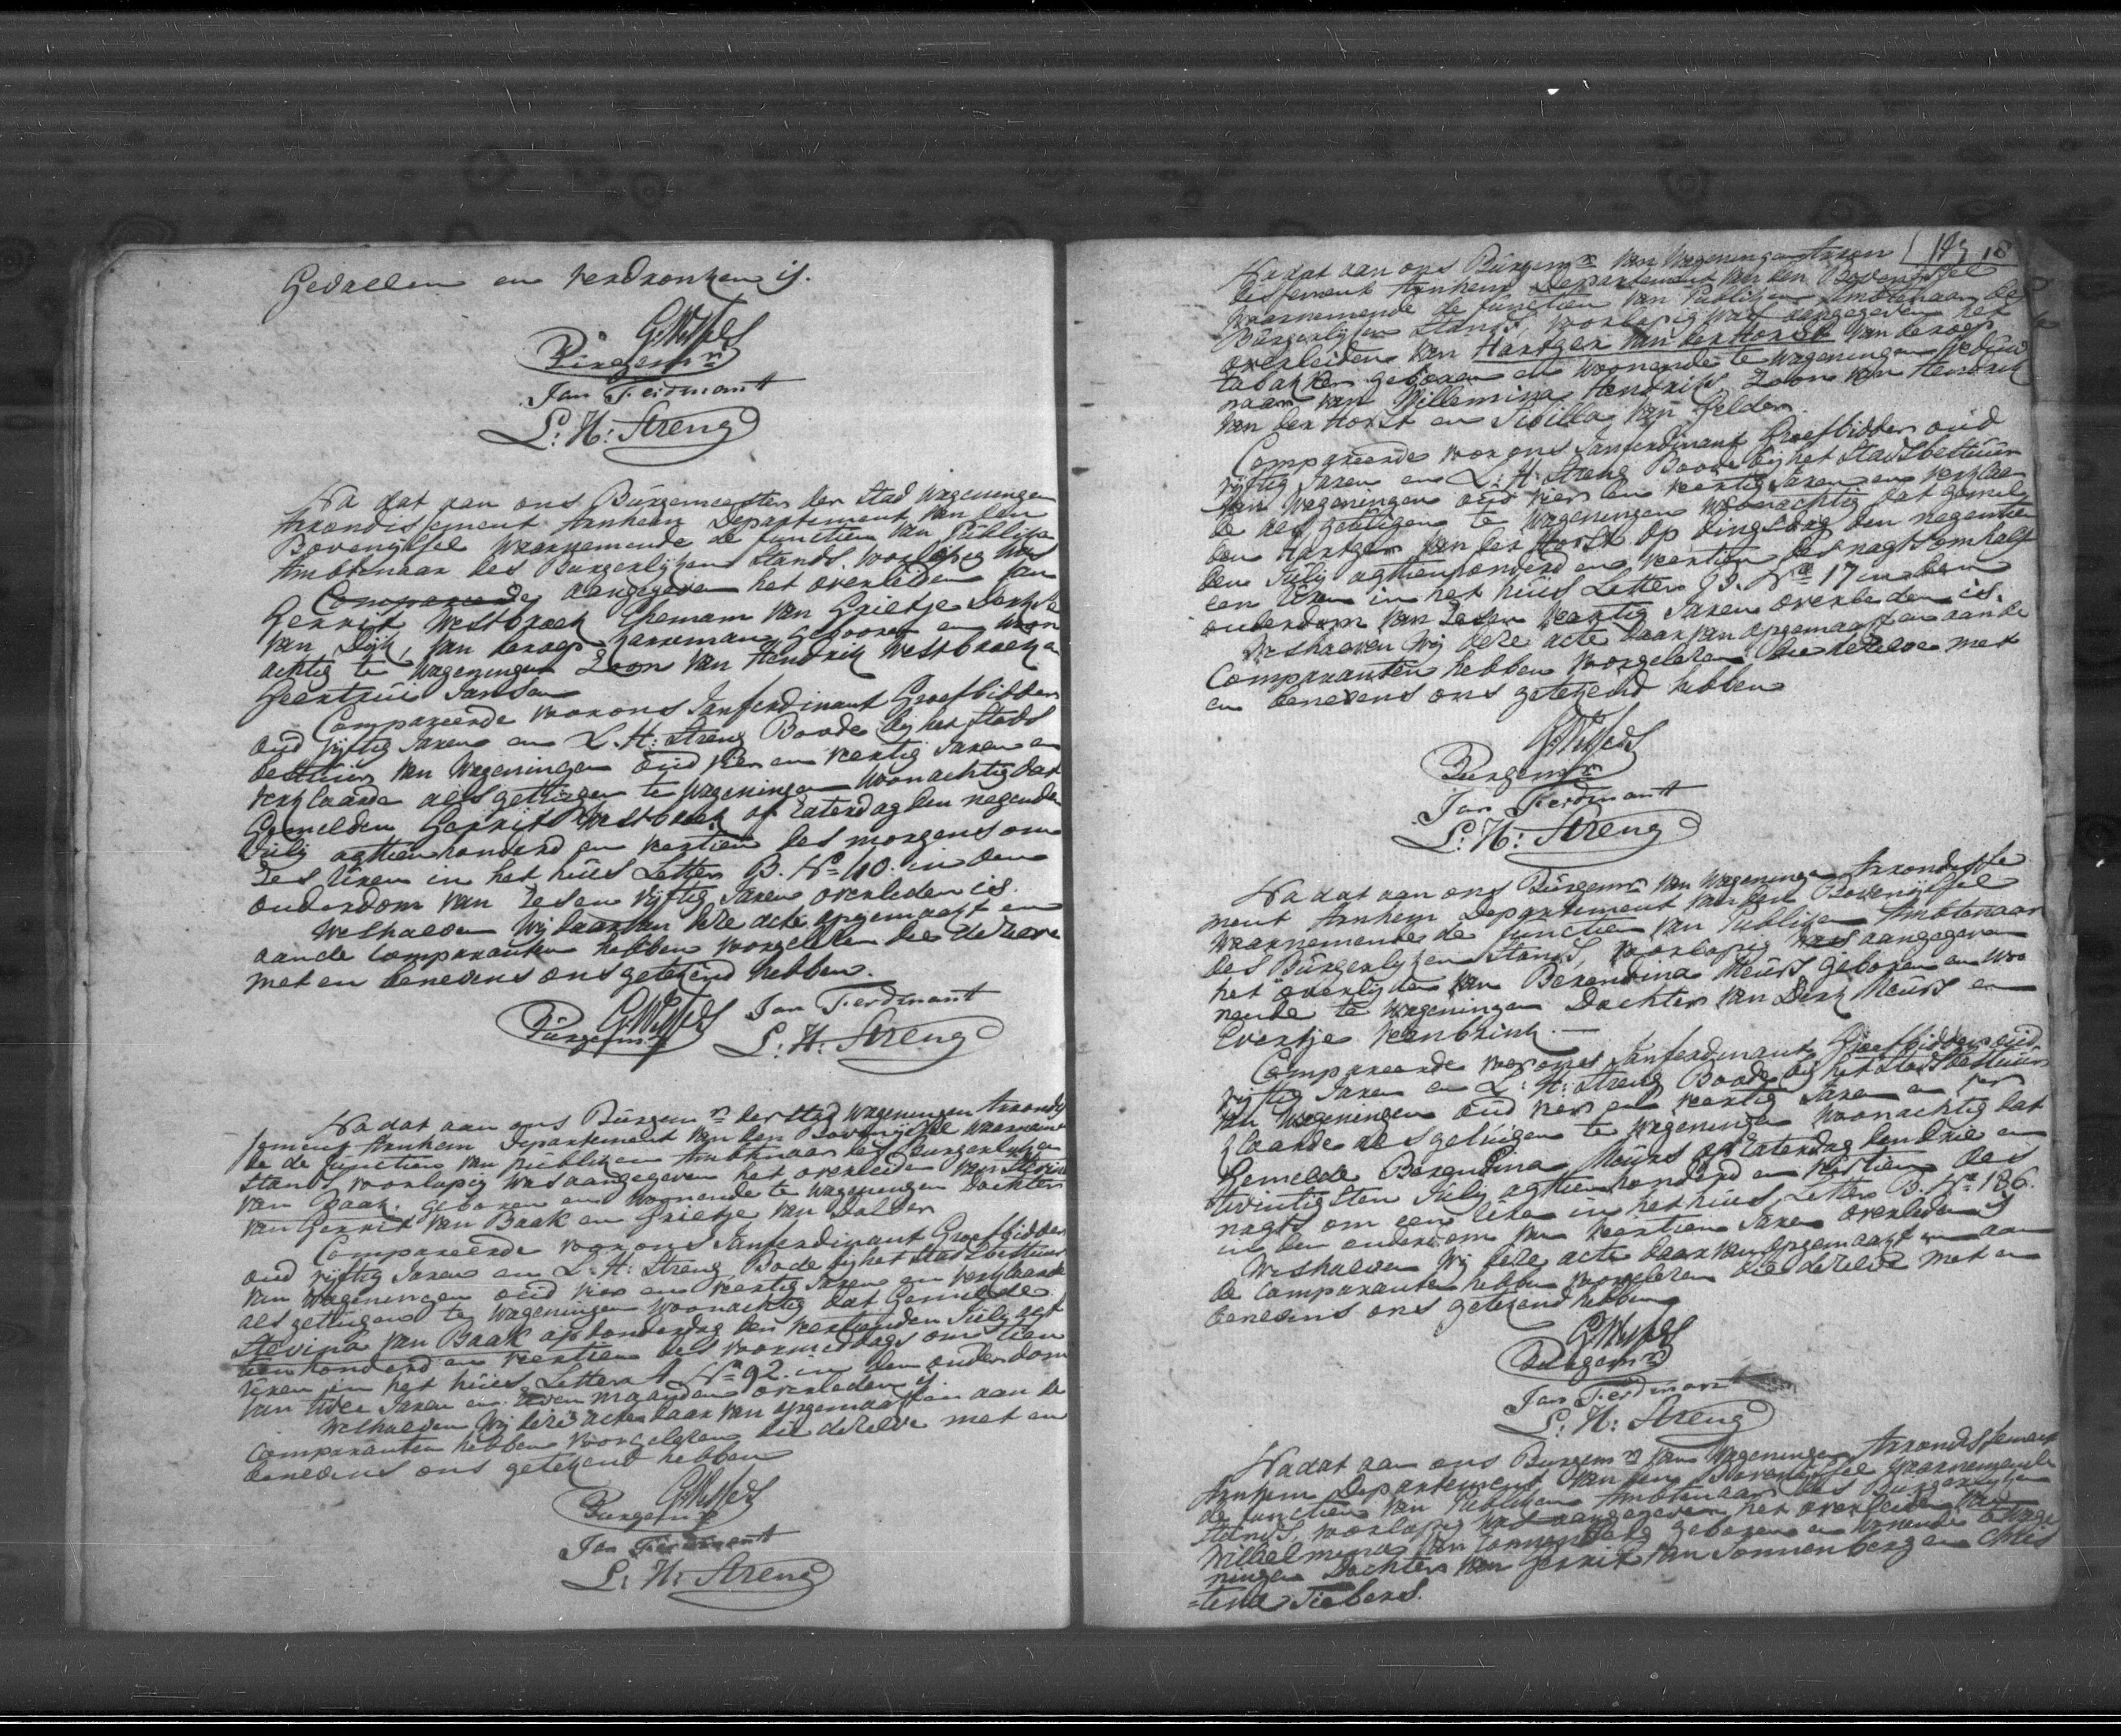 Gevallen en verdronken is.
Burgemr
Jan Ferdinant
L: H: Streng
Na dat aan ons Burgemeester der Stad Wageningen
Arrondissement Arnhem Departement van den
Bovenijssel waarnemende de functien van Publiken
Ambtenaar des Burgerlijken Stands, voorlopig was
Compareerde aangegeven het overleiden van
Gerrit Westbroek Eheman van Grietje
van Dijk, van beroep karreman gebooren en woon
achtig te Wageningen Zoon van Hendrik Westbroek en
Geertrui Jansen
Compareerde voor ons Jan ferdinant Groefbidder
oud vijftig Jaren en L. H: Streng Boode bij het Stads
bestuur van Wageningen oud vier en veertig Jaren en
verklaarde als getuigen te Wageningen woonachtig dat
Gemelden Gerrit Westbroek op Zaterdag den negenden
Julij agttien honderd en veertien des morgens om
zes Uren in het huis Letter B. No 110. in den
ouderdom van zes en vijftig Jaren overleden is.
Weshalven Wij daar van deze acte opgemaakt en
aan de Comparanten hebben voorgelezen die dezelve
met en benevens ons getekend hebben.
Burgemr Jan Ferdinant
L: H: Streng
Na dat aan ons Burgemr der stad Wageningen Arrondis
sement Arnhem Departement van den Bovenijssel waarnemen
de de functien van publiken Ambtenaar des Burgerlyken
Stands voorlopig was aangegeven het overleiden van Stevina
van Baak, geboren en Woonende te Wageningen Dochter
van Gerrit van Baak en Grietje van Dolder
Compareerde voor ons Jan ferdinant Groefbidder
oud vijftig Jaren en L: H: Streng Bode bij het Stads bestuur
van Wageningen oud vier en veertig Jaren en verklaarde
als getuigen te Wageningen woonachtig dat Gemelde
Stevina van Baak op donderdag den veertienden Julij agt
tien honderd en veertien des voormiddags om tien
Uren in het huis Letter A No 92. in den ouderdom
van twee Jaren en zeven maanden overleden is.
Weshalven Wij deze acte daar van opgemaakt en aan de
Comparanten hebben voorgelezen die dezelve met en
benevens ons getekend hebben
Burgemr
Jan Ferdinant
L: H: Streng
Nadat aan ons Burgemr van Wageningen Arron
dissement Arnhem Departement van den Bovenijssel
Waarnemende de functien van Publiken Ambtenaar des
Burgerlijken Stands, voorlopig was aangegeven het
overleiden van Hartger van der Horst van beroep
tabakker geboren en woonende te Wageningen weduw
naar van Willemina Hendriks, Zoon van Hendrik
van der Horst en Sibilla van Gelder.
Compareerde voor ons Jan ferdinant Groefbidder oud
vijftig Jaren en L: H: Streng Boode bij het Stadsbestuur
van Wageningen oud vier en veertig Jaren en verklaar
de als getuigen te Wageningen woonachtig dat gemel
den Hartger van der Horst op dingsdag den negentien
den Julij agttienhonderd en veertien des nagts om half
een Uren in het huis Letter B. No 17 in den
ouderdom van zes en veertig Jaren overleden is.
Weshalven Wij deze acte daar van opgemaakt en aan de
Comparanten hebben voorgelezen die dezelve met
en benevens ons getekend hebben
Burgemr
Jan Ferdinant
L: H: Streng
Na dat aan ons Burgemr van Wageningen Arrondisse
ment Arnhem Departement van den Bovenijssel
Waarnemende de functien van Publiken Ambtenaar
des Burgerlijken Stands, voorlopig was aangegeven
het overlijden van Berendina Meurs geboren en Woo
nende te Wageningen Dochter van Derk Meurs en
Evertje Veenbrink.
Compareerde voor ons Jan ferdinant Groefbidder oud
vijftig Jaren en L: H: Streng Boode bij het Stadsbestuur
van Wageningen oud vier en veertig Jaren en ver
klaarde als getuigen te Wageningen woonachtig dat
Gemelde Berendina Meurs op Zaterdag den drie en
twintigsten Julij agttien honderd en veertien des
nagts om een Ure in het huis Letter B. No 186.
in den ouderdom van veertien Jaren overleden is
Weshalven Wij deze acte daar van opgemaakt en aan
de Comparanten hebben voorgelezen die dezelve met en
benevens ons getekend hebben
Burgemr
Jan Ferdinant
L: H: Streng
Nadat aan ons Burgemr van Wageningen Arrondissement
Arnhem Departement van den Bovenijssel waarnemende
de functien van Publiken Ambtenaar des Burgerlijken
Stands, voorlopig was aangegeven het overleiden van
Wilhelmina van Sonnenberg geboren en wonende te Wage
ningen Dochter van Gerrit van Sonnenberg en Chris
=tina Siebers.